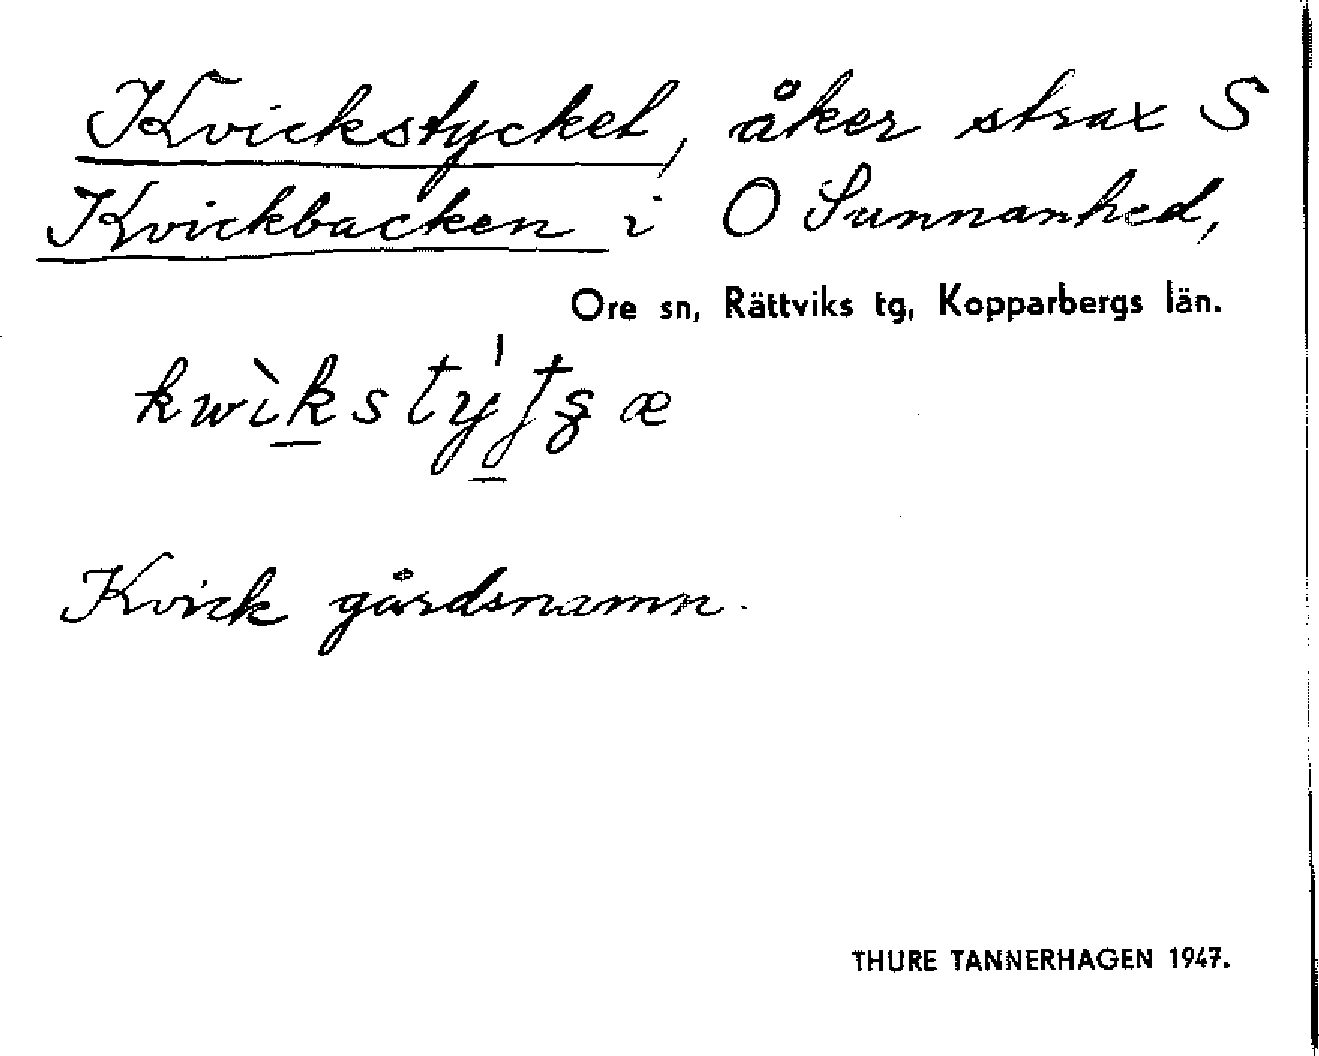 Kvickstycket, åker strax S
Kvickbacken i O Sunnanhed,
Ore sn, Rättviks tg, Kopparbergs län.
Kvick gårdsnamn.
THURE TANNERHAGEN 1947.